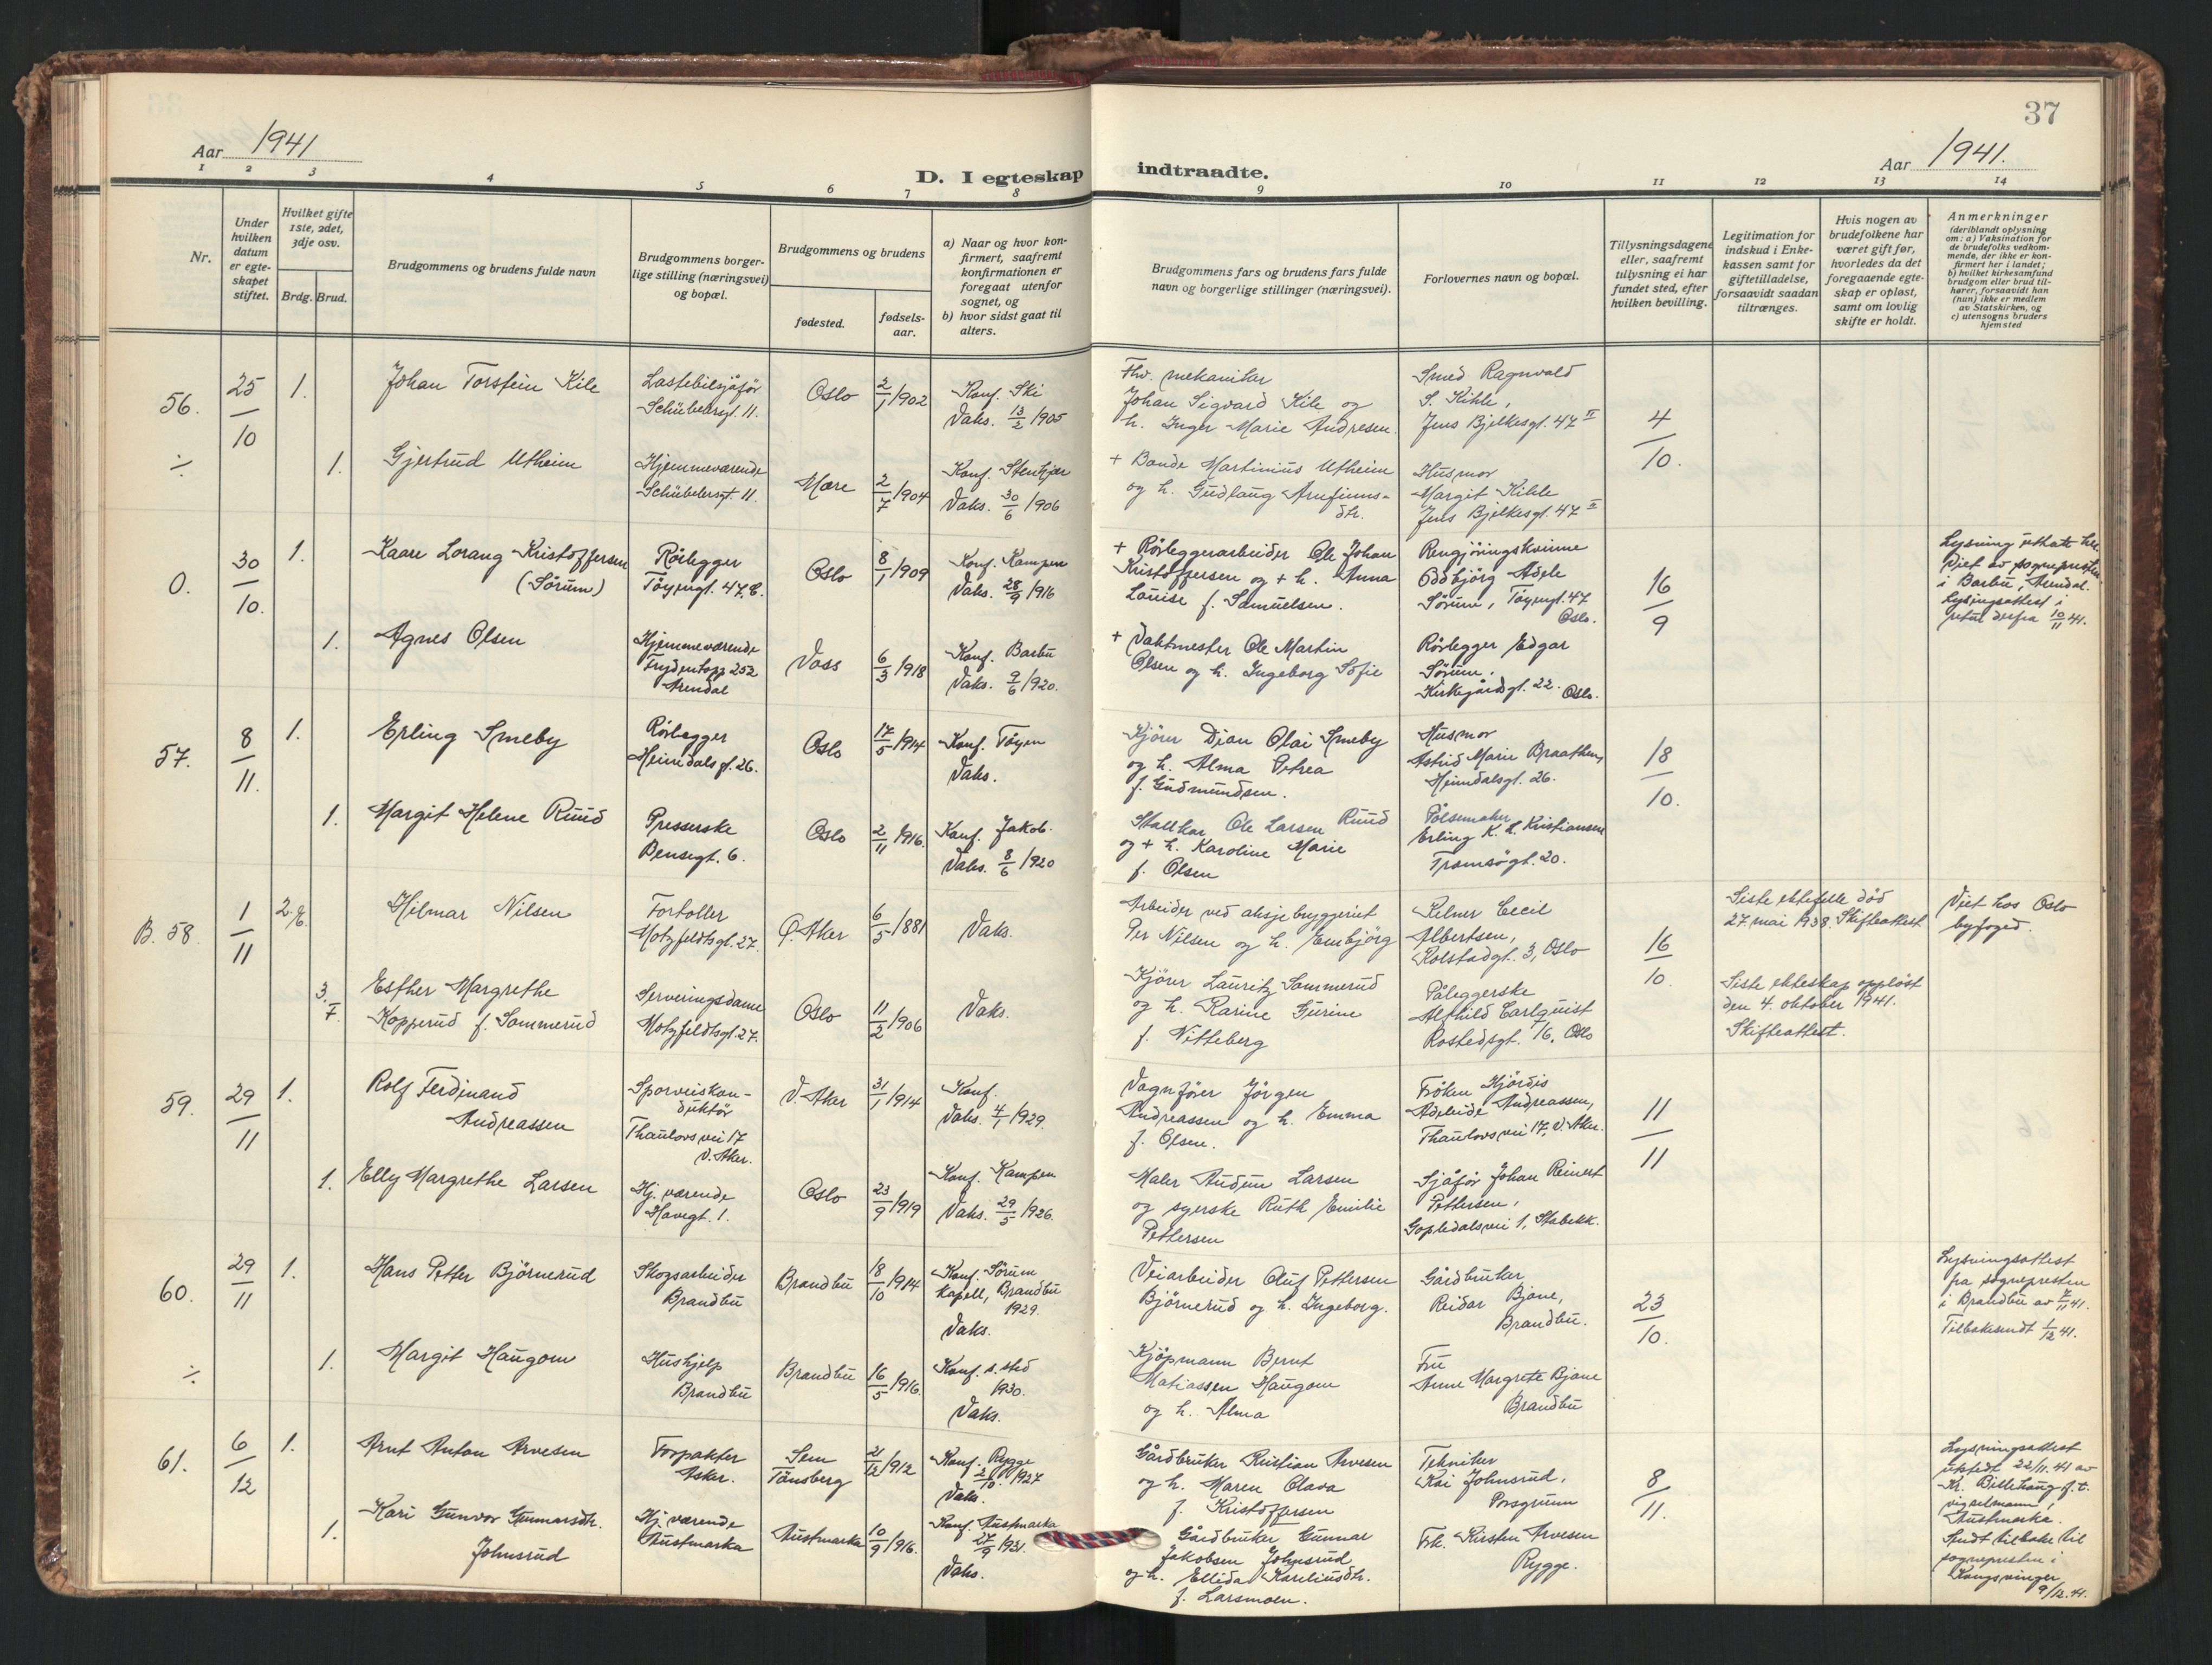 37
Aar 1941
Aar 1941.
D. I egteskap indtraadte.
1 2 3 4 5 6 7 8 9 10 11 12 13 14
Nr.
Under
hvilken
datum
er egte-
skapet
stiftet.
Hvilket gifte
1ste, 2det,
3dje osv.
Brdg. Brud.
Brudgommens og brudens fulde navn
Brudgommens borger-
lige stilling (næringsvei)
og bopæl.
Brudgommens og brudens
fødested.
fødsels-
aar.
a) Naar og hvor kon-
firmert, saafremt
konfirmationen er
foregaat utenfor
sognet, og
b) hvor sidst gaat til
alters.
Brudgommens fars og brudens fars fulde
navn og borgerlige stillinger (næringsvei).
Forlovernes navn og bopæl.
Tillysningsdagene
eller, saafremt
tillysning ei har
fundet sted, efter
hvilken bevilling.
Legitimation for
indskud i Enke-
kassen samt for
giftetilladelse,
forsaavidt saadan
tiltrænges.
Hvis nogen av
brudefolkene har
været gift før,
hvorledes da det
foregaaende egte-
skap er opløst,
samt om lovlig
skifte er holdt.
Anmerkninger
(deriblandt oplysning
om: a) Vaksination for
de brudefolks vedkom-
mende, der ikke er kon-
firmert her i landet;
b) hvilket kirkesamfund
brudgom eller brud til-
hører, forsaavidt han
(hun) ikke er medlem
av Statskirken, og
c) utensogns bruders
hjemsted
56.
25/10
1.
Johan Torstein Kile
Lastebilsjåfør
Schübelersgt. 11.
Oslo
2/1 1902
Konf. Ski
Vaks. 13/2 1905
Fhv. mekaniker
Johan Sigvard Kile og
h. Inger Marie Andresen.
Smed Ragnvald
S. Kihle,
Jens Bjelkesgt. 47 II
4/10.
÷
1.
Gjertrud Utheim
Hjemmeværende
Schübelersgt. 11.
Mære
2/7 1904
Konf. Stenkjær
Vaks. 30/6 1906
+ Bonde Martinius Utheim
og h. Gudlaug Arnfinns-
dtr.
Husmor
Margit Kihle
Jens Bjelkesgt. 47 II
0.
30/10.
1.
Kaare Lorang Kristoffersen
(Sørum)
Rørlegger
Tøyengt. 47 C.
Oslo
8/1 1909
Konf. Kampen
Vaks. 28/9 1916
+ Rørleggerarbeider Ole Johan
Kristoffersen og + h. Anna
Louise f. Samuelsen.
Rengjøringskvinne
Oddbjørg Adele
Sørum, Tøyengt. 47
Oslo.
16/9
Lysning uttatt her
Viet av sognepresten
i Barbu, Arendal.
Lysingsattest i
retur derfra 10/11 41.
1.
Agnes Olsen
Hjemmeværende
Frydentopp 252
Arendal
Voss
6/3 1918
Konf. Barbu
Vaks. 9/6 1920.
+ Vaktmester Ole Martin
Olsen og h. Ingeborg Sofie
Rørlegger Edgar
Sørum.
Kirkegårdsgt. 22. Oslo.
57.
8/11.
1.
Erling Smeby
Rørlegger
Heimdalsgt. 26.
Oslo
17/5 1914
Konf. Tøyen
Vaks.
Kjører Dian Olai Smeby
og h. Alma Petrea
f. Gudmundsen.
Husmor
Astrid Marie Braathen,
Heimdalsgt. 26.
18/10.
1.
Margit Helene Ruud
Presserske
Bensegt. 6.
Oslo
2/11 1916.
Konf. Jakob.
Vaks. 8/6 1920
Stallkar Ole Larsen Ruud
og + h. Karoline Marie
f. Olsen
Pølsemaker
Erling K. L. Kristiansen
Tromsøgt. 20.
B. 58.
1/11
2. E.
Hilmar Nilsen
Fortoller
Motzfeldtsgt. 27.
Ø. Aker
6/5 1881
Vaks.
Arbeider ved aksjebryggeriet
Per Nilsen og h. Embjørg
Relner Cecil
Albertsen,
Kolstadgt. 3, Oslo
16/10.
Siste ektefelle død
27. mai 1938. Skifteattest
Viet hos Oslo
byfoged.
3. F.
Esther Margrethe
Kopperud f. Sommerud
Serveringsdame
Motzfeldtsgt. 27.
Oslo
11/2 1906
Vaks.
Kjører Lauritz Sommerud
og h. Karine Gurine
f. Nitteberg
Påleggerske
Alfhild Carlquist
Rostedsgt. 16. Oslo
Siste ekteskap oppløst
den 4. oktober 1941.
Skifteattest.
59.
29/11
1.
Rolf Ferdinand
Andreassen
Sporveiskon-
duktør
Thaulows vei 17
V. Aker.
V. Aker
31/1 1914
Konf.
Vaks. 4/1 1929.
Vognfører Jørgen
Andreassen og h. Emma
f. Olsen.
Frøken Hjørdis
Adeleide Andreassen,
Thaulows vei 17, V. Aker.
11/11
1.
Elly Margrethe Larsen
Hj. værende
Havegt. 1.
Oslo
23/9 1919
Konf. Kampen
Vaks. 29/5 1926.
Maler Audun Larsen
og syerske Ruth Emilie
Pettersen
Sjåfør Johan Reinert
Pettersen,
Gopledalsvei 1, Stabekk.
60.
29/11
1.
Hans Petter Bjørnerud
Skogsarbeider
Brandbu
Brandbu
18/10 1914
Konf. Sørum
kapell, Brandbu
1929.
Vaks.
Veiarbeider Oluf Pettersen
Bjørnerud og h. Ingeborg.
Gårdbruker
Reidar Bjone,
Brandbu.
23/10.
Lysningsattest
fra sognepresten
i Brandbu av 7/11 41.
Tilbakesendt 1/12 41.
÷
1.
Margit Haugom
Hushjelp
Brandbu
Brandbu
16/5 1916.
Konf. s. sted
1930.
Vaks.
Kjøpmann Bernt
Matiassen Haugom
og h. Alma
Fru
Anne Margrete Bjone
Brandbu
61.
6/12
1.
Arnt Anton Arvesen
Forpakter
Asker.
Sem
Tønsberg
21/12 1912
Konf. Rygge
2/10 1927
Vaks.
Gårdbruker Kristian Arvesen
og h. Maren Olava
f. Kristoffersen
Tekniker
Kai Johnsrud,
Porsgrunn
8/11.
Lysningsattest
utstedt 22/11. 41 av
Kr. Billehaug f. t.
vigselmann,
Austmarka.
Sendt tilbake til
sognepresten i
Kongsvinger
9/12. 41.
1.
Kari Gunvor Gunnarsdtr.
Johnsrud
Hj. værende
Austmarka
Austmarka
10/9 1916.
Konf. Austmarka
27/9 1931.
Vaks.
Gårdbruker Gunnar
Jakobsen Johnsrud
og h. Ellida Kareliusdtr.
f. Larsmoen.
Frk. Kirsten Arvesen
Rygge.